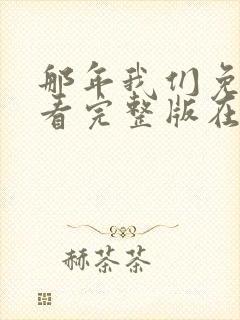 那年我们免
看完整版在
赫茶茶